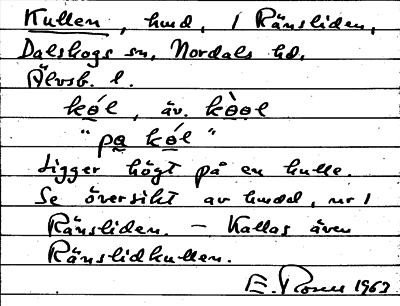 Kullen, hmd, i Ränsliden,
Dalskogs sn, Nordals hd,
Älvsb. l.
kǿl, äv. kòol
"pa kǿl"
Ligger högt på en kulle.
Se översikt av hmdd, nr 1
Ränsliden. – Kallas även
Ränslidkullen.
E. Rosén 1963